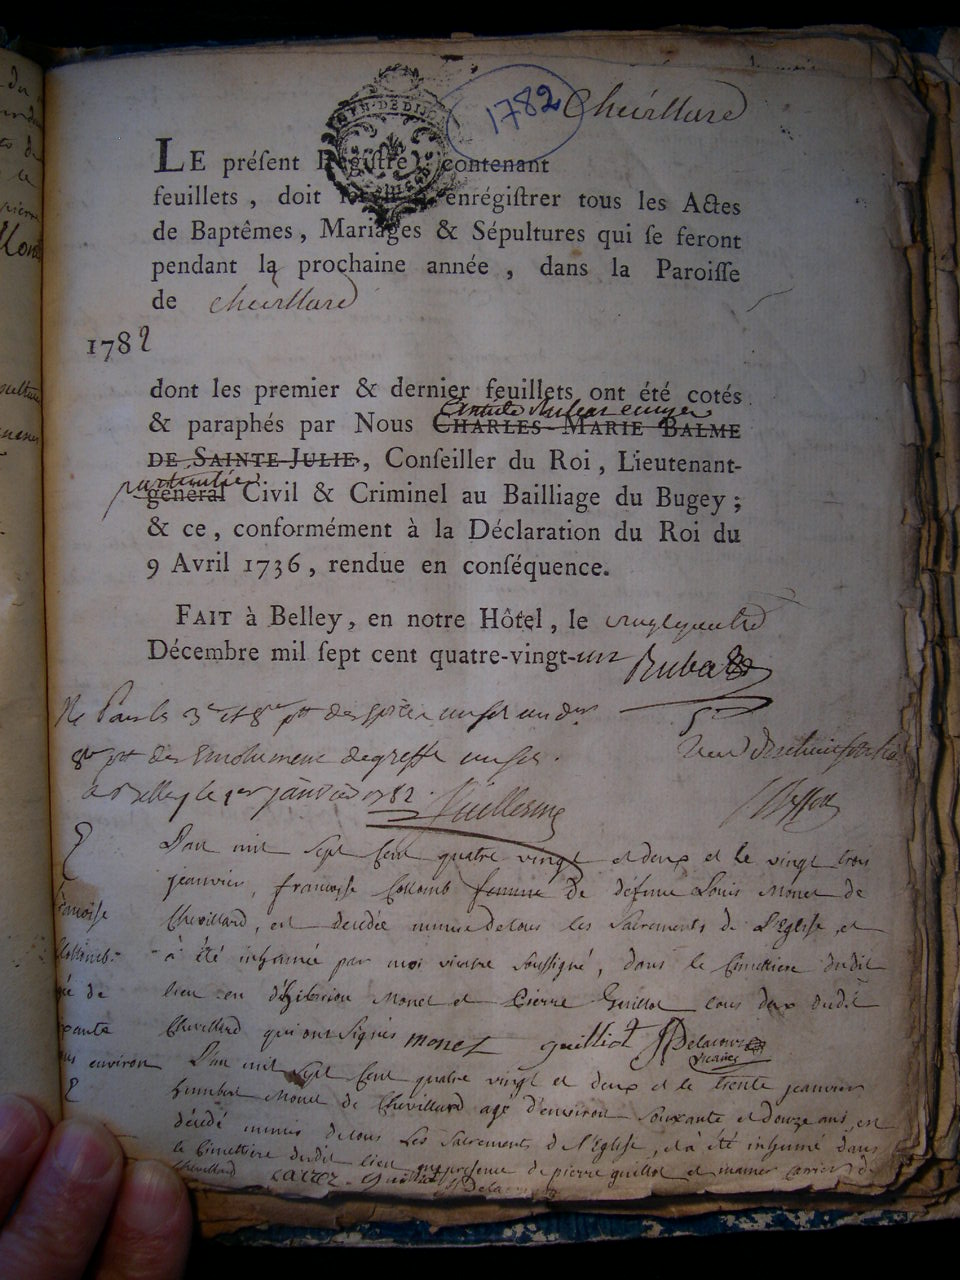 GEN. DE DIJON
1782 Cheivllard
LE préſent Regiſtre, contenant
feuillets, doit enrégiſtrer tous les Actes
de Baptêmes, Mariages & Sépultures qui ſe feront
pendant la prochaine année, dans la Paroiſſe
de cheivllard
1782
dont les premier & dernier feuillets ont été cotés
& paraphés par Nous CHARLES-MARIE BALME
DE SAINTE-JULIE, Conſeiller du Roi, Lieutenant-
particulier
général Civil & Criminel au Bailliage du Bugey;
& ce, conformément à la Déclaration du Roi du
9 Avril 1736, rendue en conſéquence.
FAIT à Belley, en notre Hôtel, le vingt quatre
Décembre mil ſept cent quatre-vingt-un Rubat
a Belley le 1er janvier 1782 Guillermin
L'an mil Sept Cent quatre vingt et deux et le vingt trois
jeanvier, francoise Collomb femme de défunt Louis Monet de
Chevillard, est décédée munie de tous les Sacrements de L'Eglise, et
à été inhumée par moi vicaire soussigné, dans le Cimettiere dudit
lieu en Monet et Pierre Guillot tous deux dudit
Chevillard qui ont Signés monet guilliot Delacour
vicaire
francoise
Collomb
agée de
ans environ
L'an mil Sept Cent quatre vingt et deux et le trente jeanvier
humbert Monet de Chevillard agé d'environ Soixante et douze ans, est
décédé munis de tous Les Sacrements de l'Eglise, et à été inhumé dans
le Cimettiere dudit lieu en présence de pierre guillot et
Chevillard carrez guilliot